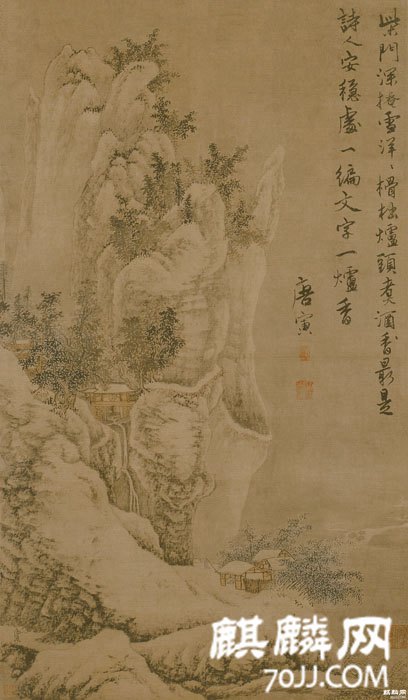 柴門深掩雪洋〻榾柮爐頭煮酒香最是
詩人安穩處一編文字一爐香
唐寅
麒麟网
70JJ.COM